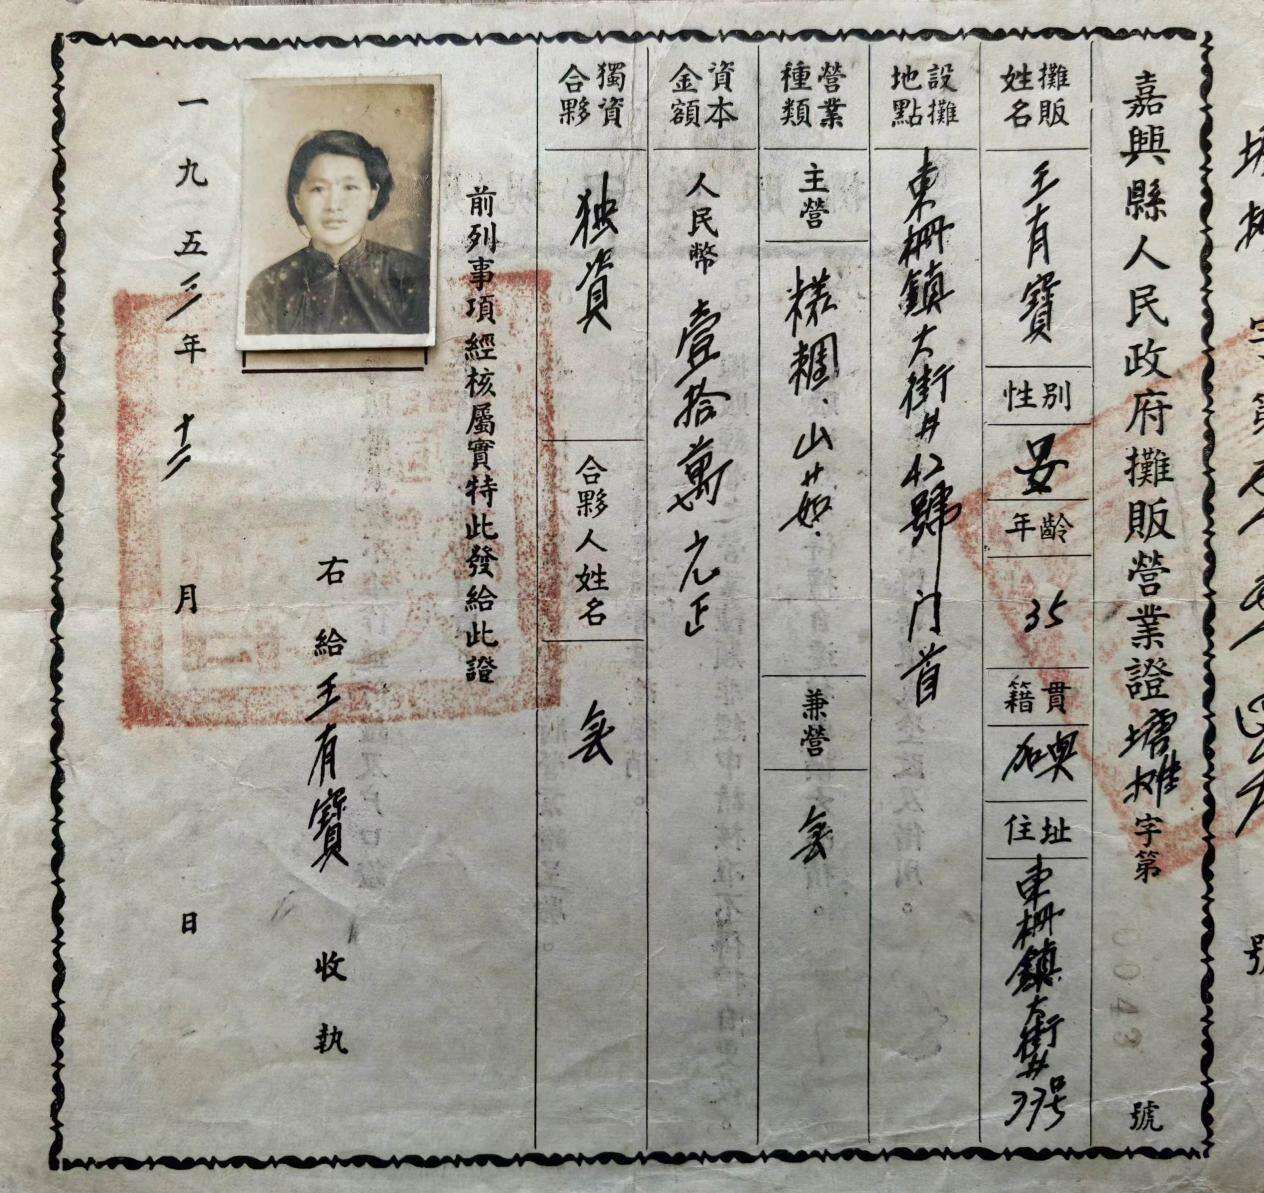 嘉興縣人民政府攤販營業證塘摊字第 0043 號
攤販姓名
王有寶
性別
女
年齡
35
籍貫
加興
住址
東柵鎮大街廿33号
設攤地點
東柵鎮大街廿42號门首
營業種類
主營
山茹
兼營
無
資本金額
人民幣 壹拾萬元正
獨資合夥
独資
合夥人姓名
無
前列事項經核屬實特此發給此證
右給王有寶收執
一九五三年十二月 日